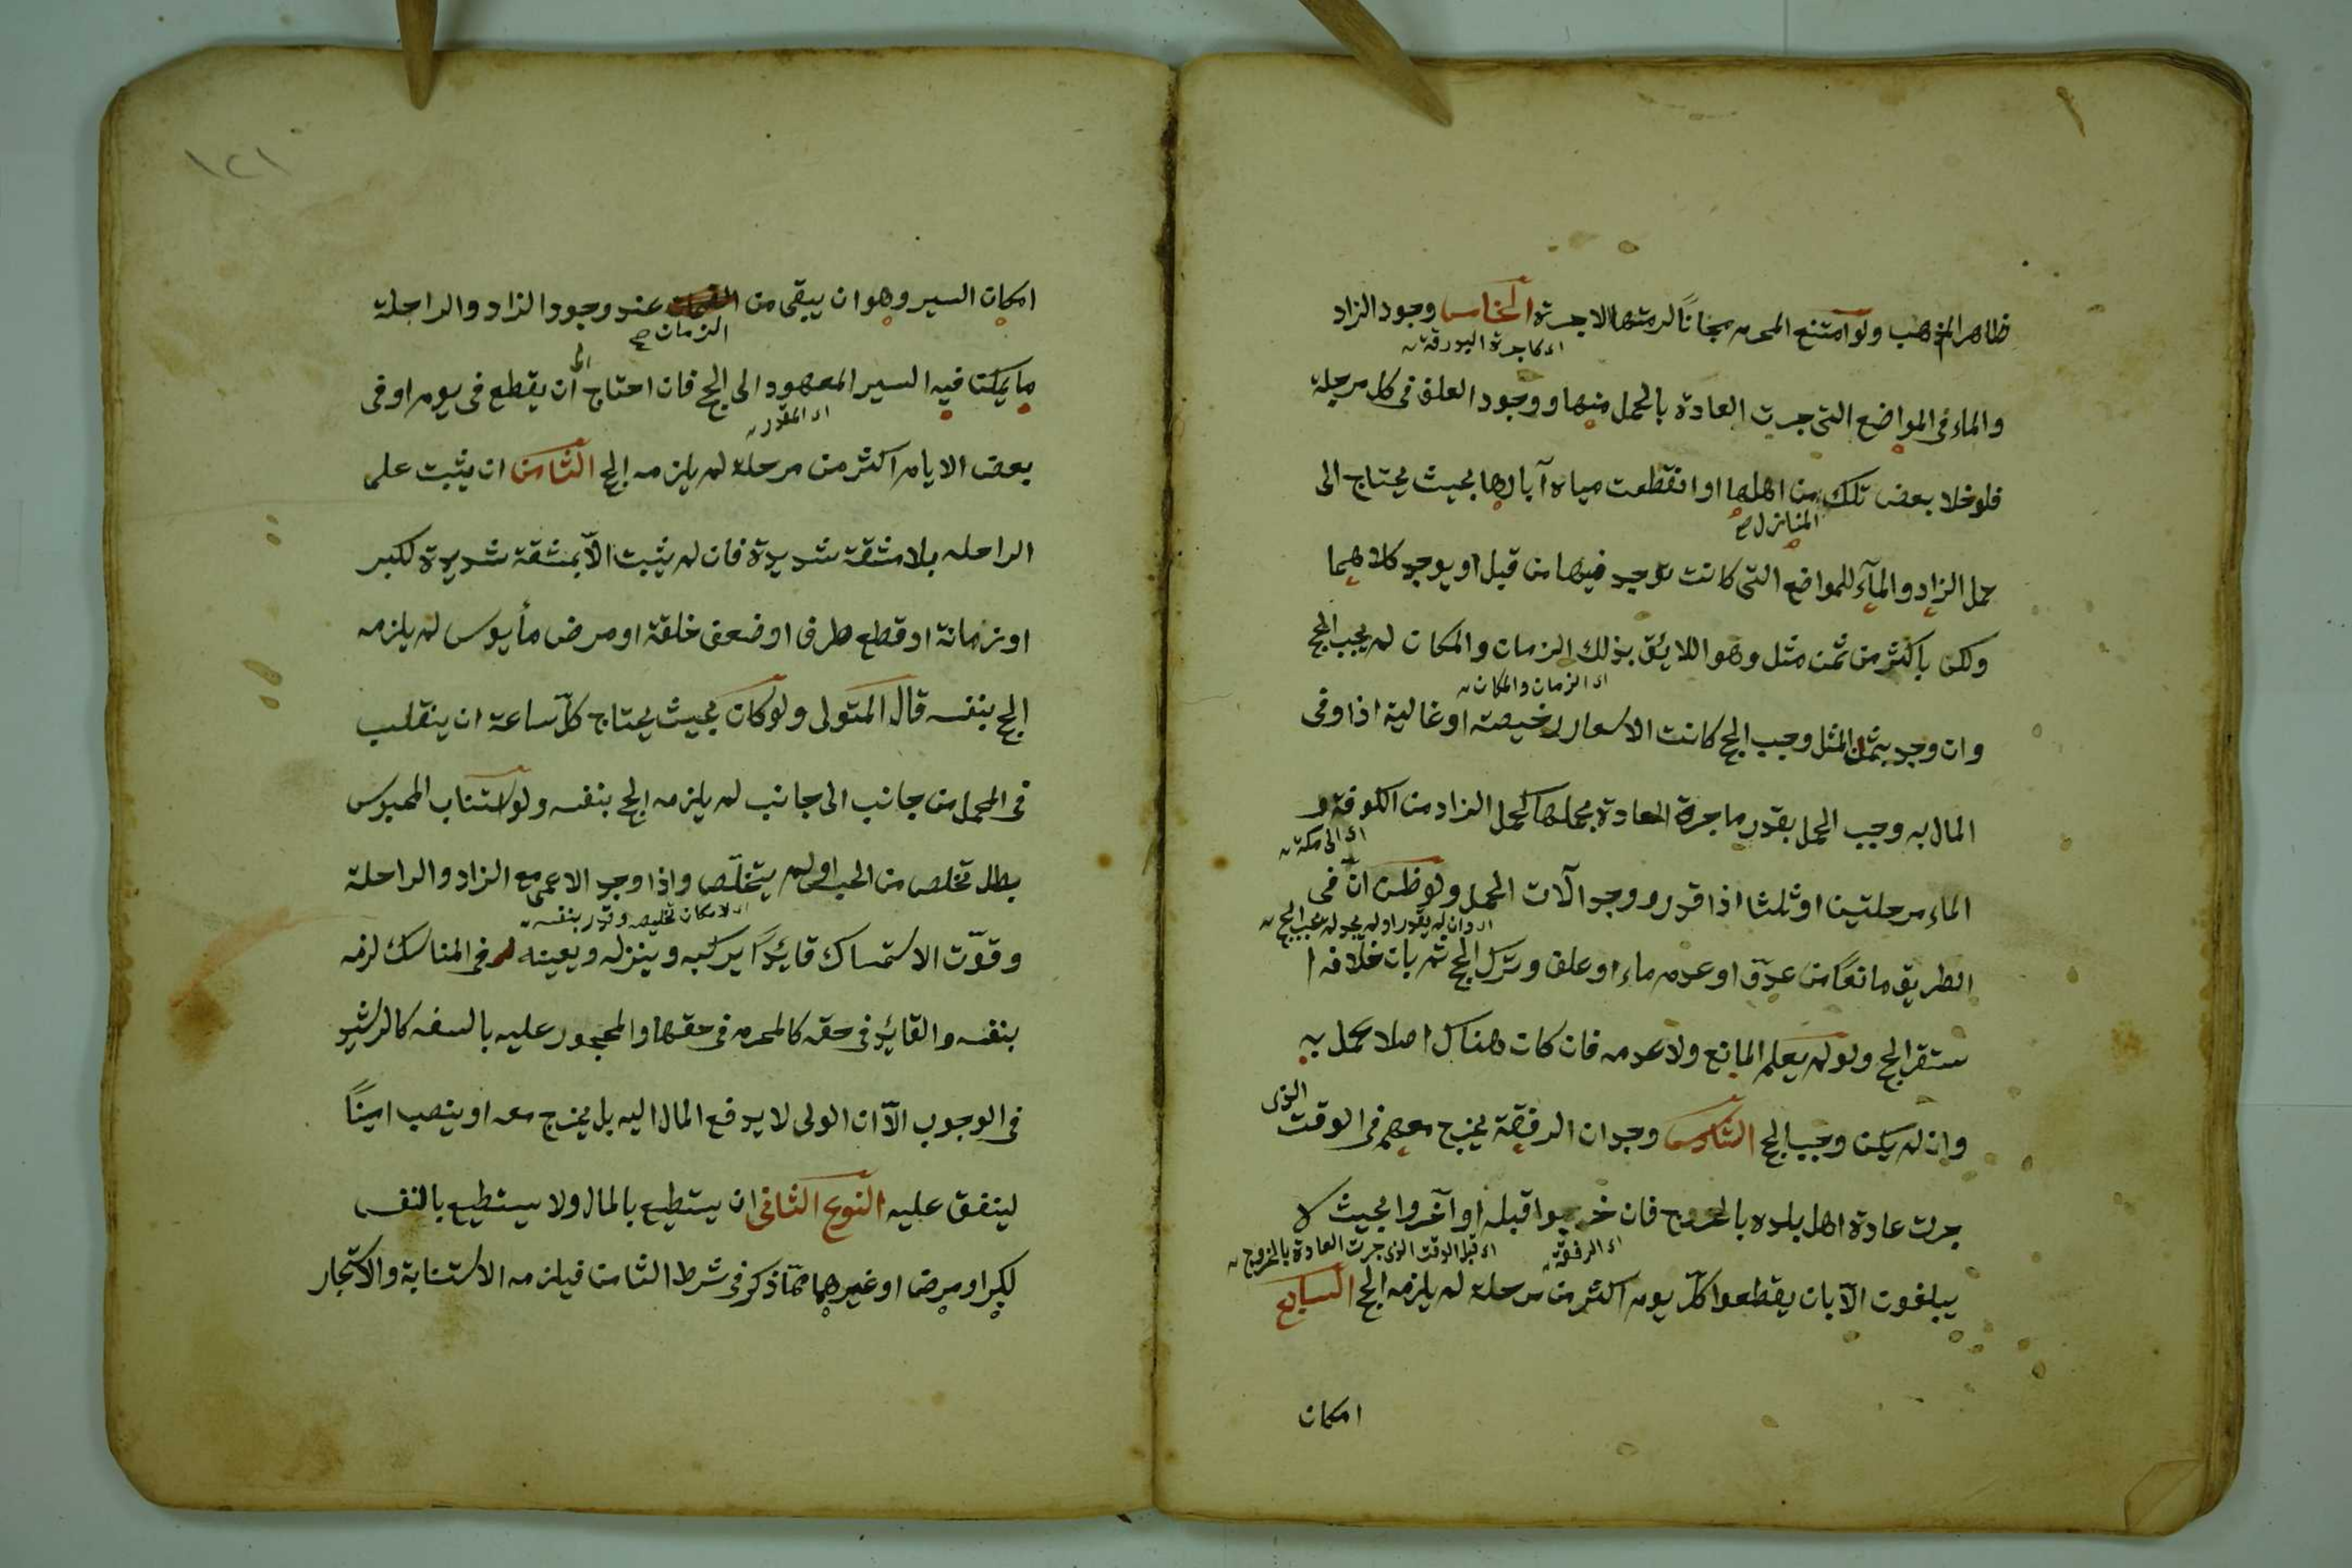 ظاهر المذهب ولو امتنع المحرم مجاناً لزمتها الاجرة الخامس وجود الزاد
اى كاجرة البدرقة
والماء فى المواضع التى جرت العادة بالحمل منها ووجود العلف فى كل مرحلة
فلو خلا بعض تلك من اهلها او انقطعت مياه آبارها بحيث يحتاج الى
المنازل صح
حمل الزاد والمآء للمواضع التى كانت توجد فيها من قبل او يوجد كلاهما
ولكن باكثر من ثمن مثل وهو اللائق بذلك الزمان والمكان لم يجب الحج
اى الزمان والمكان
وان وجد بثمن المثل وجب الحج كانت الاسعار رخيصة او غالية اذا وفى
المال به وجب الحمل بقدر ما جرة العادة بحملها كحمل الزاد من الكوفة و
اى الى مكة
الماء مرحلتين او ثلثا اذا قدر ووجد آلات الحمل ولو ظن انّ فى
اى وان لم يقدر او لم يجد لم يجب الحج
الطريق مانعاً من عدوّ او عدم ماء او علف وترك الحج ثم بان خلافه ا
ستقر الحج ولو لم يعلم المانع ولا عدمه فان كان هناك اصلا عمل به
وان لم يكن وجب الحج السادس وجدان الرفقة يخرج معهم فى الوقت الذى
جرت عادة اهل بلده بالخروج فان خرجوا قبله او آخروا بحيث لا
اى الرفقة
اى قبل الوقت الذى جرت العادة بالخروج
يبلغون الآ بان يقطعوا كلّ يوم اكثر من مرحلة لم يلزمه الحج السابع
امكان
١٢١
امكان السير وهو ان يبقى من عند وجود الزاد والراحلة
الزمان صح
ما يمكن فيه السير المعهود الى الحج فان احتاج الى ان يقطع فى يوم او فى
اى المقدر
بعض الايام اكثر من مرحلة لم يلزمه الحج الثامن ان يثبت على
الراحله بلا مشقة شديدة فان لم يثبت الاّ بمشقة شديدة لكبر
او زمانة او قطع طرف او ضعف خلقة او مرض مأيوس لم يلزمه
الحج بنفسه قال المتولى ولو كان بحيث يحتاج كلّ ساعة ان ينقلب
فى المحمل من جانب الى جانب لم يلزمه الحج بنفسه ولو استناب المحبوس
بطل تخلص من الحبس او لم يتخلّص واذا وجد الاعمى مع الزاد والراحلة
اى لامكان تخليصه وقدر بنفسه
وقوّت الاستمساك قائداً يركبه وينزله ويعينه فى المناسك لزمه
بنفسه والقائد فى حقه كالمحرم فى حقها والمحجور عليه بالسفه كالرشيد
فى الوجوب الآ ان الولى لا يدفع المال اليه بل يخرج معه او ينصب اميناً
لينفق عليه النوع الثانى ان يستطيع بالمال ولا يستطيع بالنفس
لكبر او مرض او غيرهما ممّا ذكر فى شرط الثامن فيلزمه الاستنابة والاستيجار